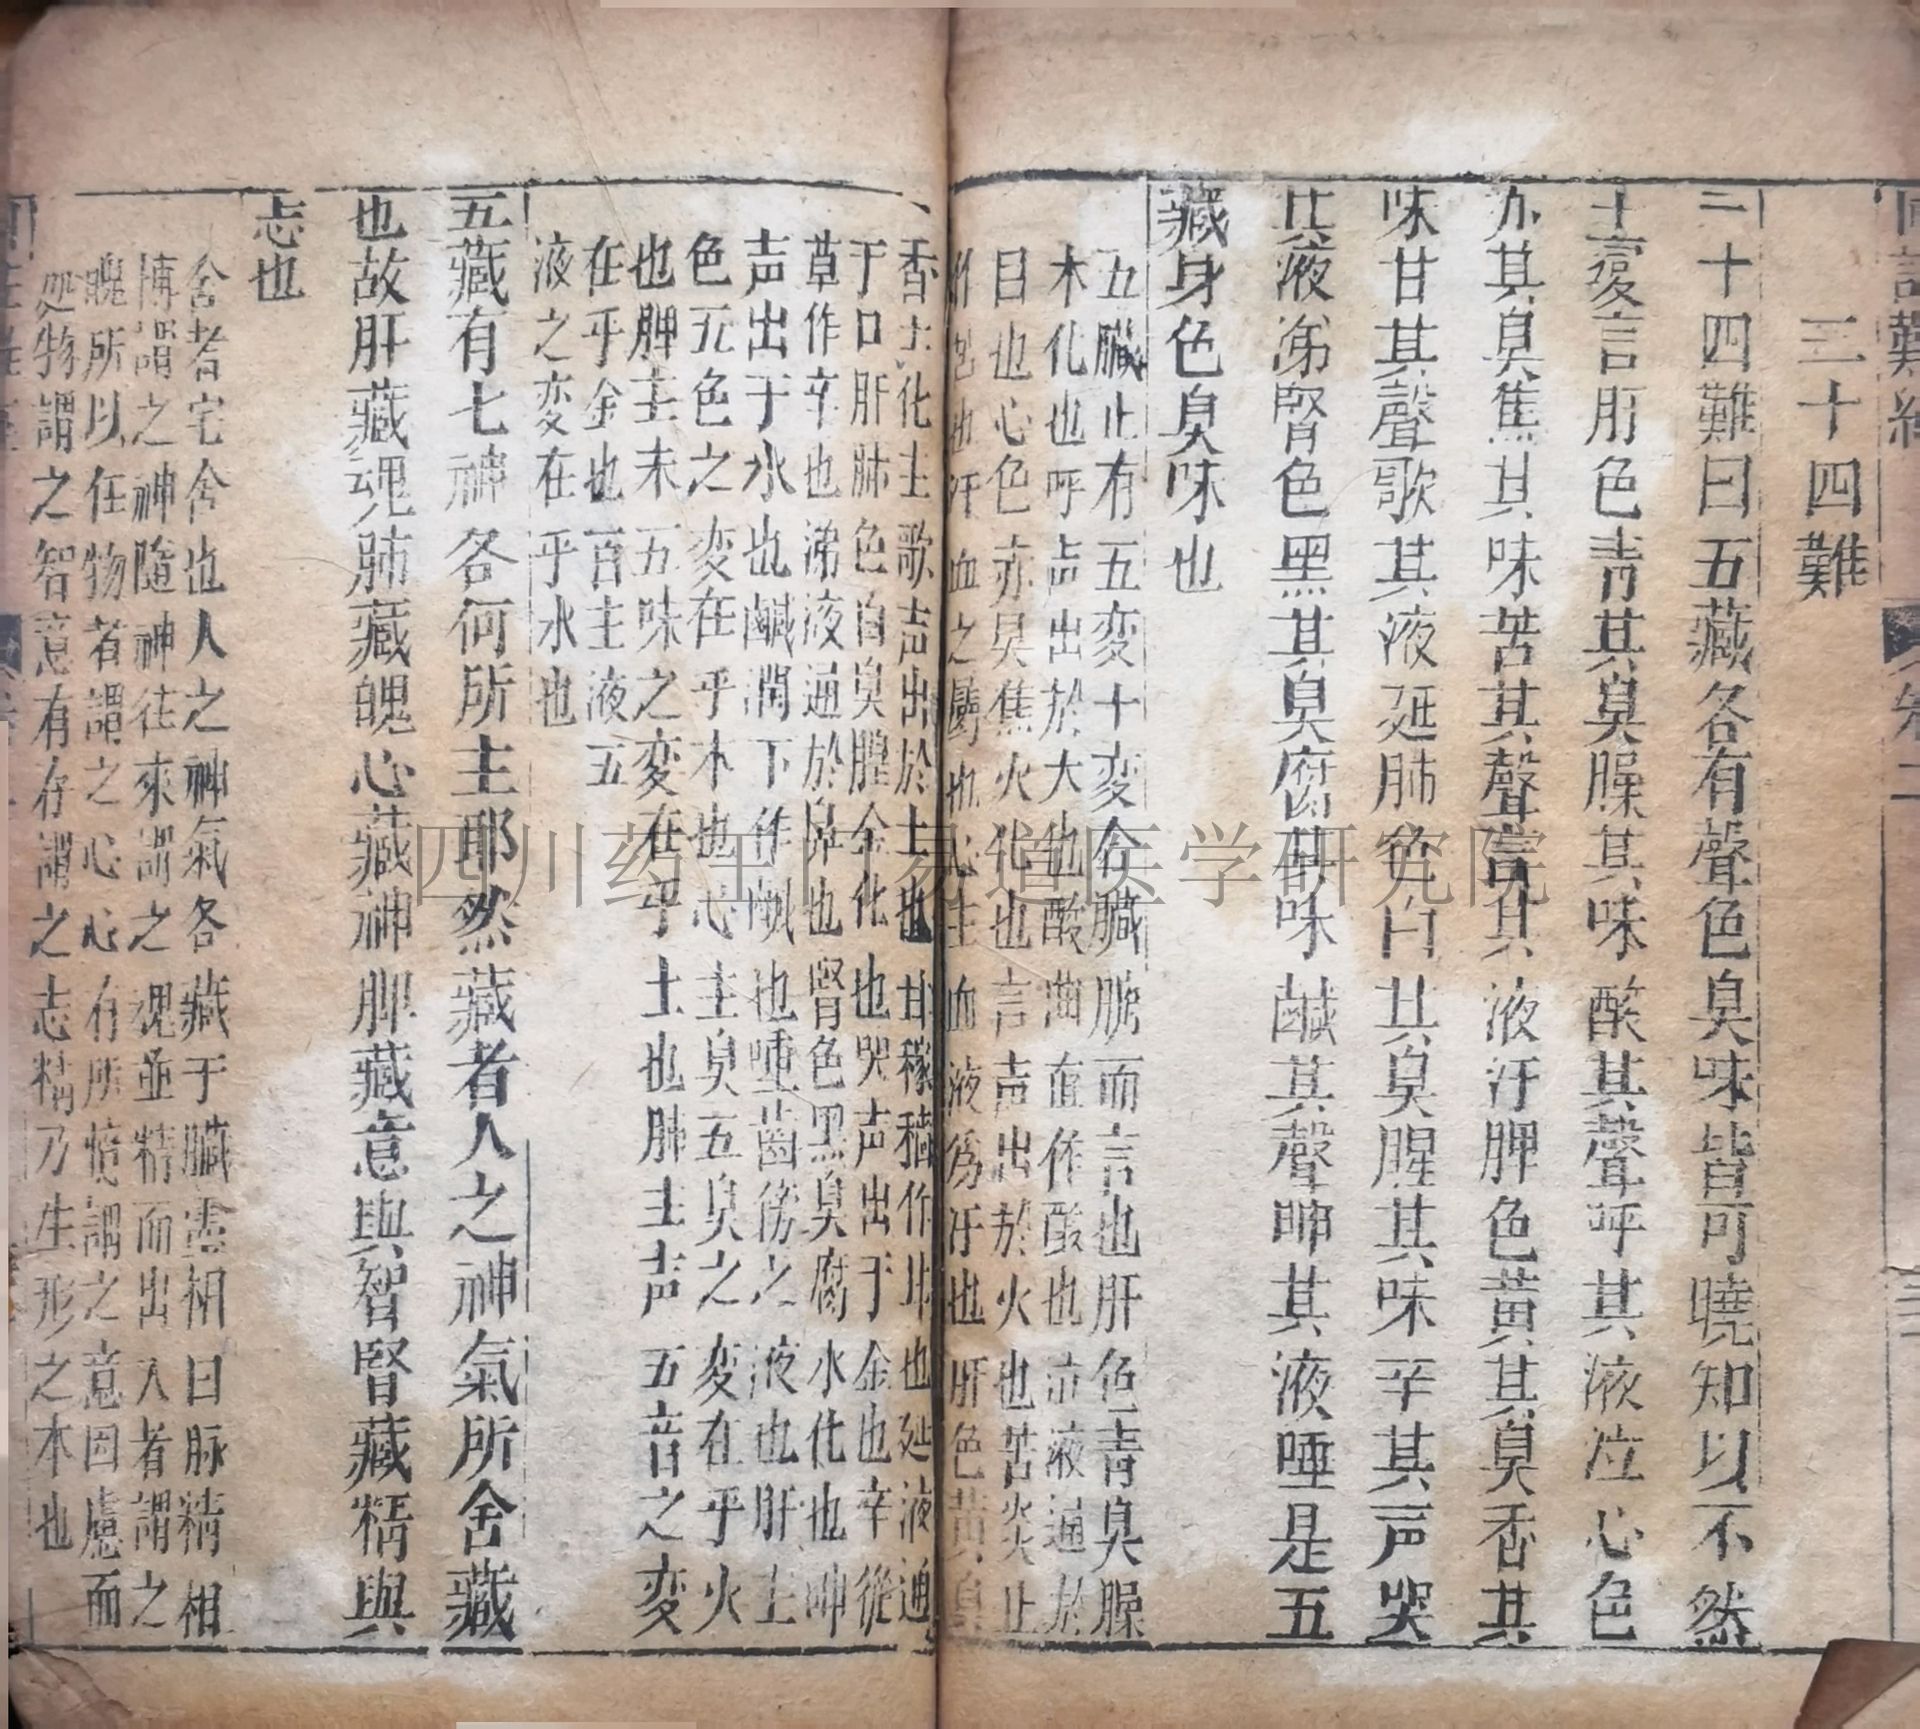 三十四難
三十四難曰五藏各有聲色臭味皆可曉知以不然
十變言肝色青其臭臊其味酸其聲呼其液泣心色
赤其臭焦其味苦其聲言其液汗脾色黃其臭香其
味甘其聲歌其液涎肺色白其臭腥其味辛其声哭
其液涕腎色黑其臭腐其味鹹其聲呻其液唾是五
藏身色臭味也
五臟止有五变十变合臟腑而言也肝色青臭臊
木化也呼声出於木也酸曲直作酸也泣液通於
目也心色赤臭焦火化也言声出於火也苦炎上
作苦也汗血之屬也心主血液為汗也脾色黃臭
香土化土歌声出於土也甘稼穡作甘也涎液通
于口肝肺色白臭腥金化也哭声出于金也辛從
草作辛也涕液通於鼻也腎色黑臭腐水化也呻
声出于水也鹹潤下作鹹也唾齒傍之液也肝主
色五色之变在乎木也心主臭五臭之变在乎火
也脾主未五味之变在乎土也肺主声五音之变
在乎金也百主液五
液之变在乎水也
五藏有七神各何所主耶然藏者人之神氣所舍藏
也故肝藏魂肺藏魄心藏神脾藏意與智腎藏精與
志也
舍者宅舍也人之神氣各藏于臟焉相曰脉精相
博謂之神隨神往來謂之魂並精而出入者謂之
魄所以任物者謂之心心有所憶謂之意因慮而
処物謂之智意有存謂之志精乃生形之本也
四川药王门易道医学研究院